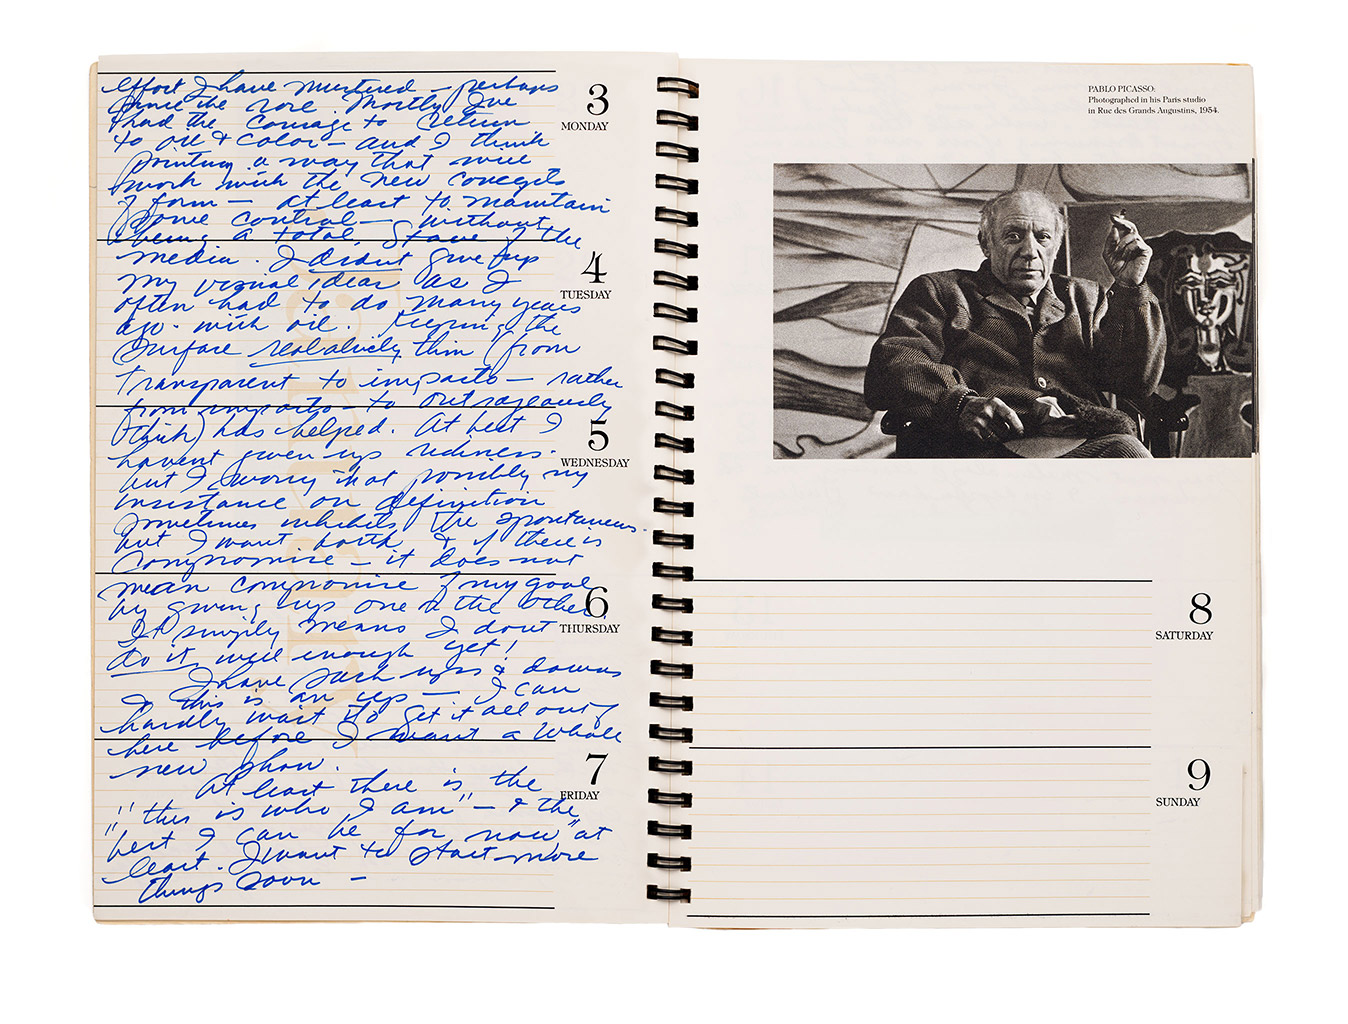 effort I have nurtured – perhaps
since the rose. Mostly I've
had the courage to return
to oil & color – and I think
pointing a way that will
work with the new concepts
of form – at least to maintain
some control – without
being a total slave of the
media. I didnt give up
my visual idea as I
often had to do many years
ago. with oil. Keeping the
surface realatively thin (from
transparent to impasto – rather
from impasto – to outrageously
thick) has helped. At best I
havent given up richness.
but I worry that possibly my
insistance on definition
sometimes inhibits the spontaneous.
but I want both & if there is
compromise – it does not
mean compromise of my goal
by giving up one or the other.
It simply means I dont
do it well enough yet!
I have such ups & downs
this is an up – I can
hardly wait to get it all out of
here before I want a whole
new show.
At least there is the
"this is who I am" – & the
"best I can be for now" at
least. I want to start more
things soon –
3
MONDAY
4
TUESDAY
5
WEDNESDAY
6
THURSDAY
7
FRIDAY
PABLO PICASSO:
Photographed in his Paris studio
in Rue des Grands Augustins, 1954.
8
SATURDAY
9
SUNDAY